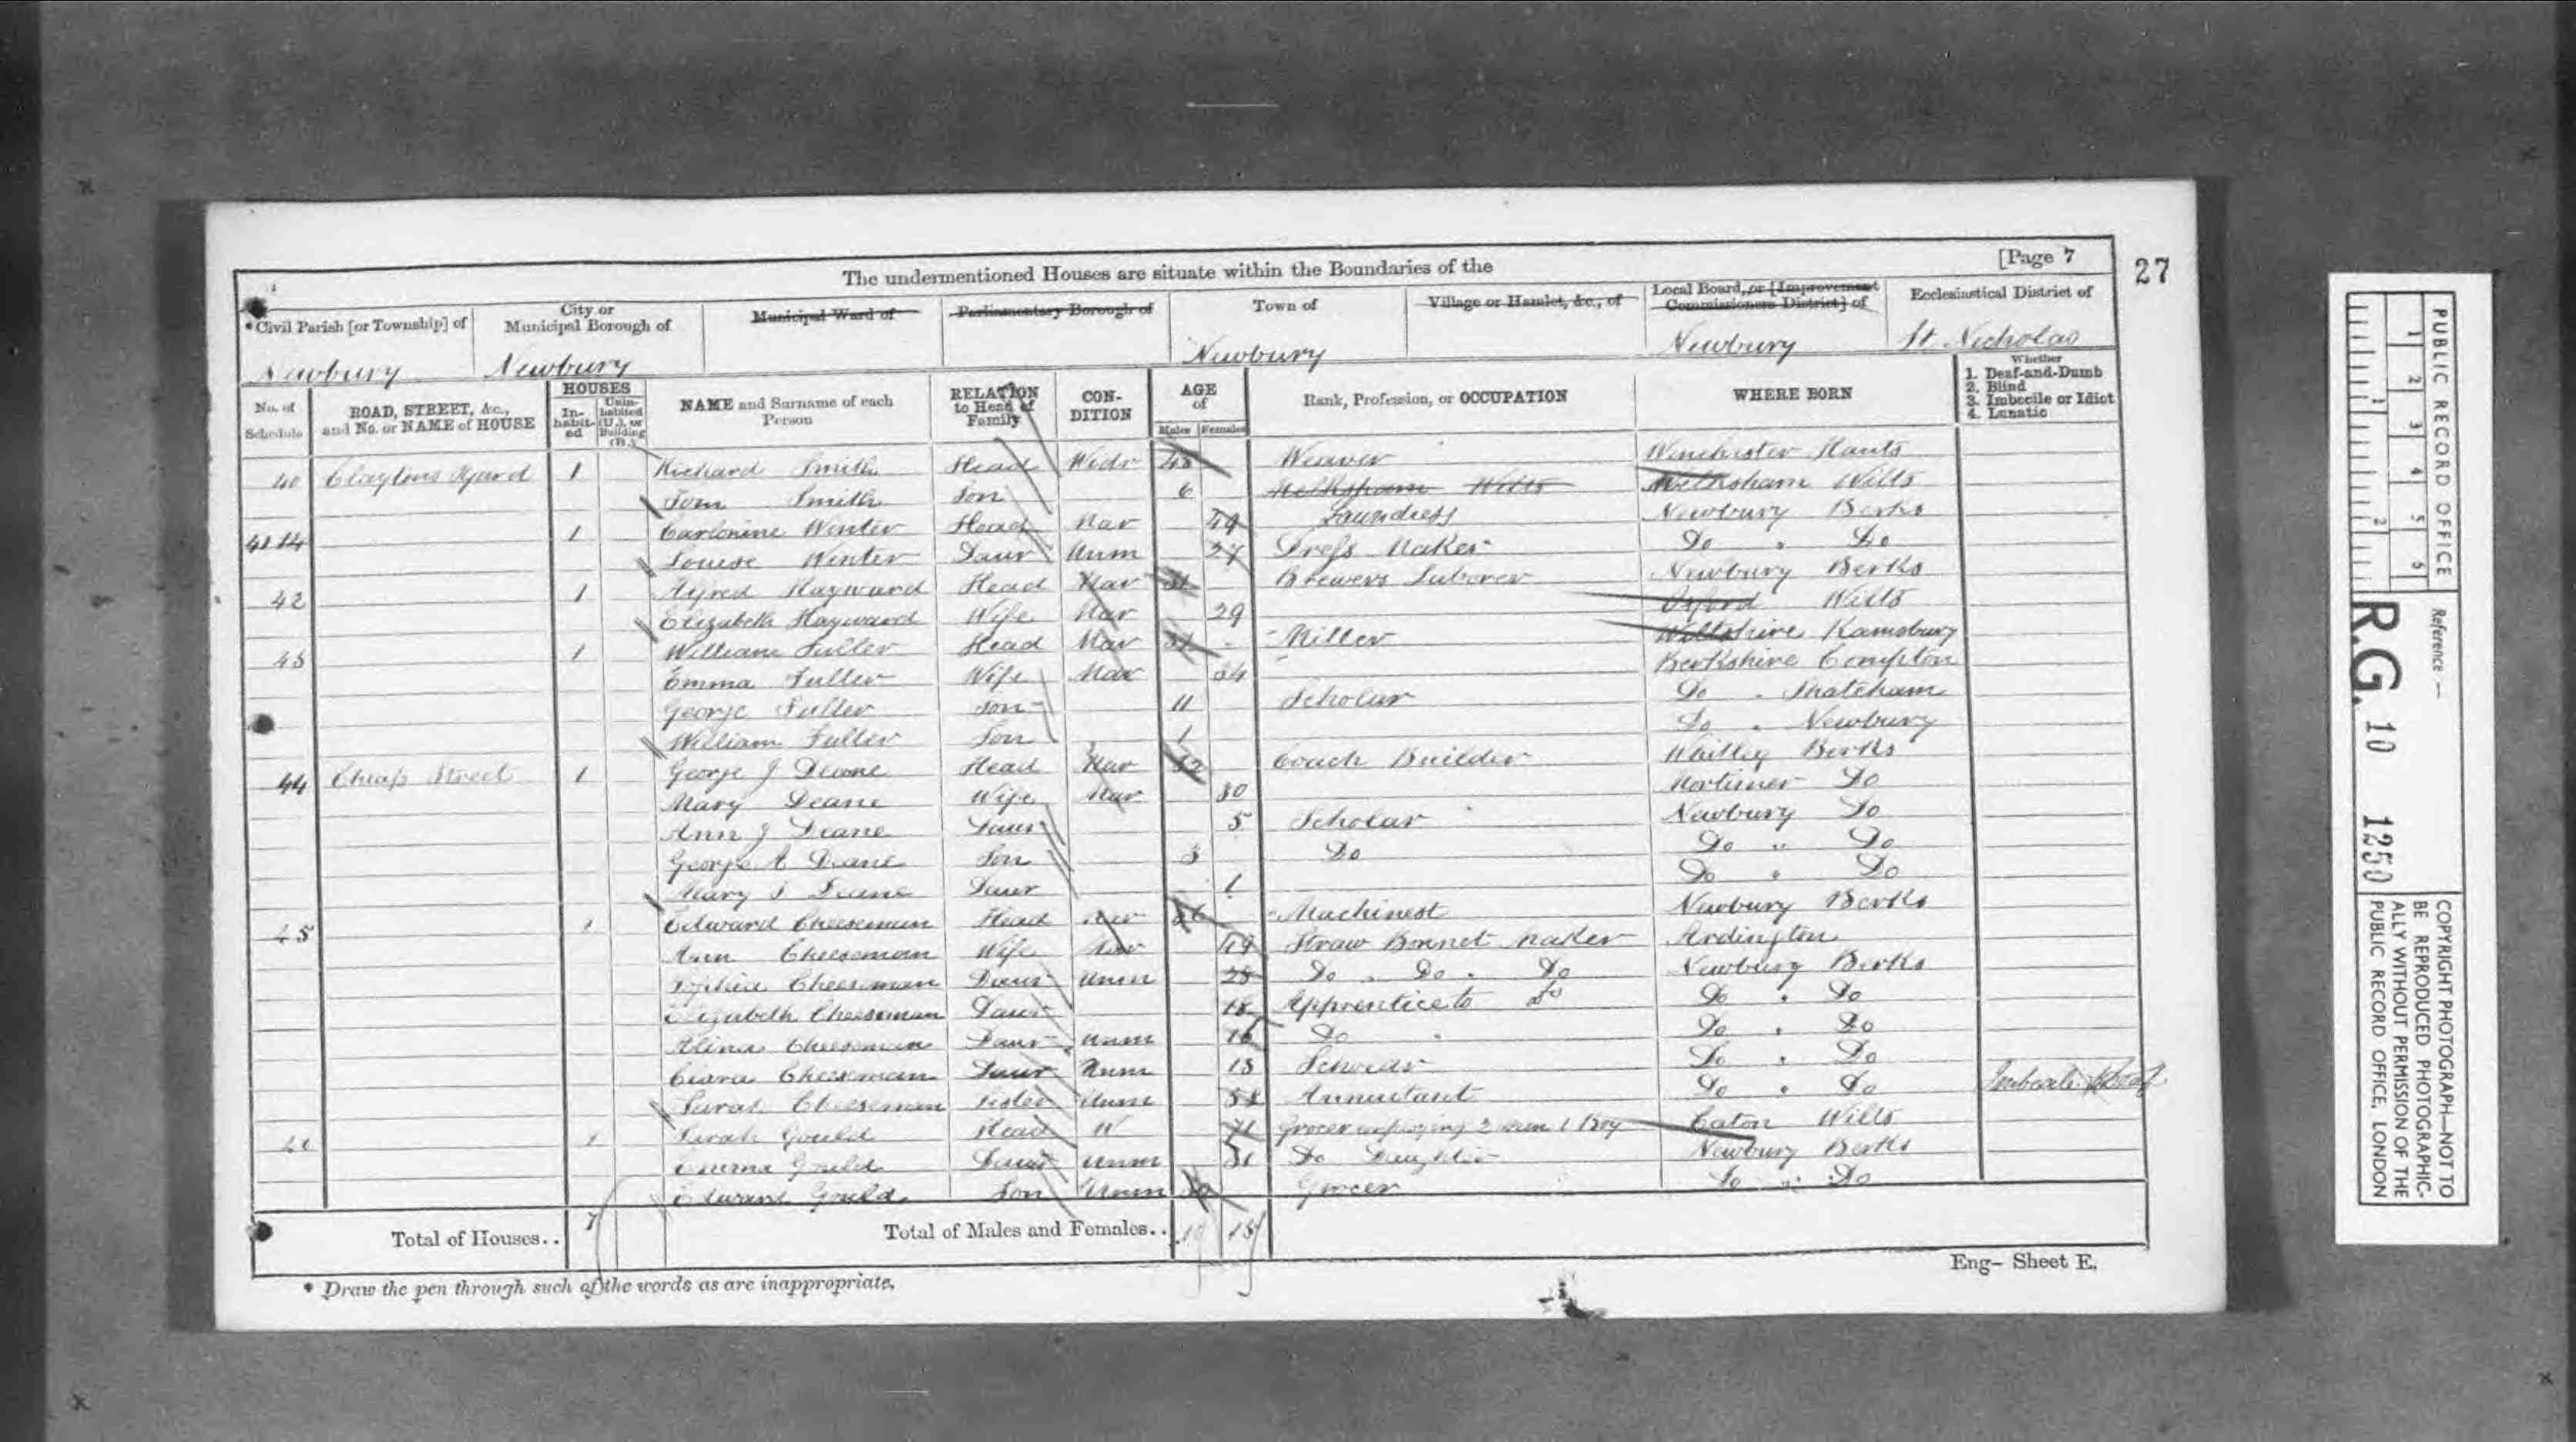 The undermentioned Houses are situate within the Boundaries of the
[Page 7
27
*Civil Parish [or Township] of
City or Municipal Borough of
Municipal Ward of
Parliamentary Borough of
Town of
Village or Hamlet, &c., of
Local Board, or [Improvement Commissioners District] of
Ecclesiastical District of
Newbury Newbury Newbury Newbury St. Nicholas
No. of Schedule
ROAD, STREET, &c., and No. or NAME of HOUSE
HOUSES
In-habit-ed
Unin-habited (U.), or Building (B.)
NAME and Surname of each Person
RELATION to Head of Family
CON-DITION
AGE of
Males Females
Rank, Profession, or OCCUPATION
WHERE BORN
Whether
1. Deaf-and-Dumb
2. Blind
3. Imbecile or Idiot
4. Lunatic
40 Claytons 1 Richard Smith Head Widr 48 Weaver Winchester Hants
Tom Smith Son 6 Melksham Wilts Melksham Wilts
1 Winter Head Mar 49 Laundress Newbury Berks
Louise Winter Daur Unm 27 Dress Maker Do Do
42 1 Alfred Hayward Head Mar Brewers Laborer Newbury Berks
Elizabeth Hayward Wife Mar 29 Wilts
43 1 William Fuller Head Mar Miller Wiltshire Ramsbury
Emma Fuller Wife Mar 34 Berkshire Compton
George Fuller Son 11 Scholar Do Thatcham
William Fuller Son 1 Do Newbury
44 Cheap Street 1 George J Deane Head Mar 32 Coach Builder Whitley Berks
Mary Deane Wife Mar 30 Mortimer Do
Ann J Deane Daur 5 Scholar Newbury Do
George E Deane Son 3 Do Do " Do
Mary Deane Daur 1 Do " Do
45 1 Edward Cheeseman Head Mar Machinest Newbury Berks
Ann Cheeseman Wife Mar 49 Straw Bonnet Maker Ardington
Sophia Cheeseman Daur Unm 28 Do Do Do Newbury Berks
Elizabeth Cheeseman Daur 18 Apprentice to Do Do Do
Cheeseman Daur Unm 16 Do Do Do
Clara Cheeseman Daur Unm 13 Scholar Do Do
Sarah Cheeseman Sister Unm 58 Annuitant Do Do Imbecile
1 Sarah Gould Head W 71 Grocer employing 2 men 1 Boy Wilts
Emma Gould Daur Unm 31 Do Daughter Newbury Berks
Edward Gould Son Unm Grocer Do Do
Total of Houses.. 7 Total of Males and Females..
Eng- Sheet E.
* Draw the pen through such of the words as are inappropriate.
PUBLIC RECORD OFFICE
1 2 3 4 5 6
1 2
Reference :—
R.G. 10 1250
COPYRIGHT PHOTOGRAPH—NOT TO
BE REPRODUCED PHOTOGRAPHIC-
ALLY WITHOUT PERMISSION OF THE
PUBLIC RECORD OFFICE, LONDON